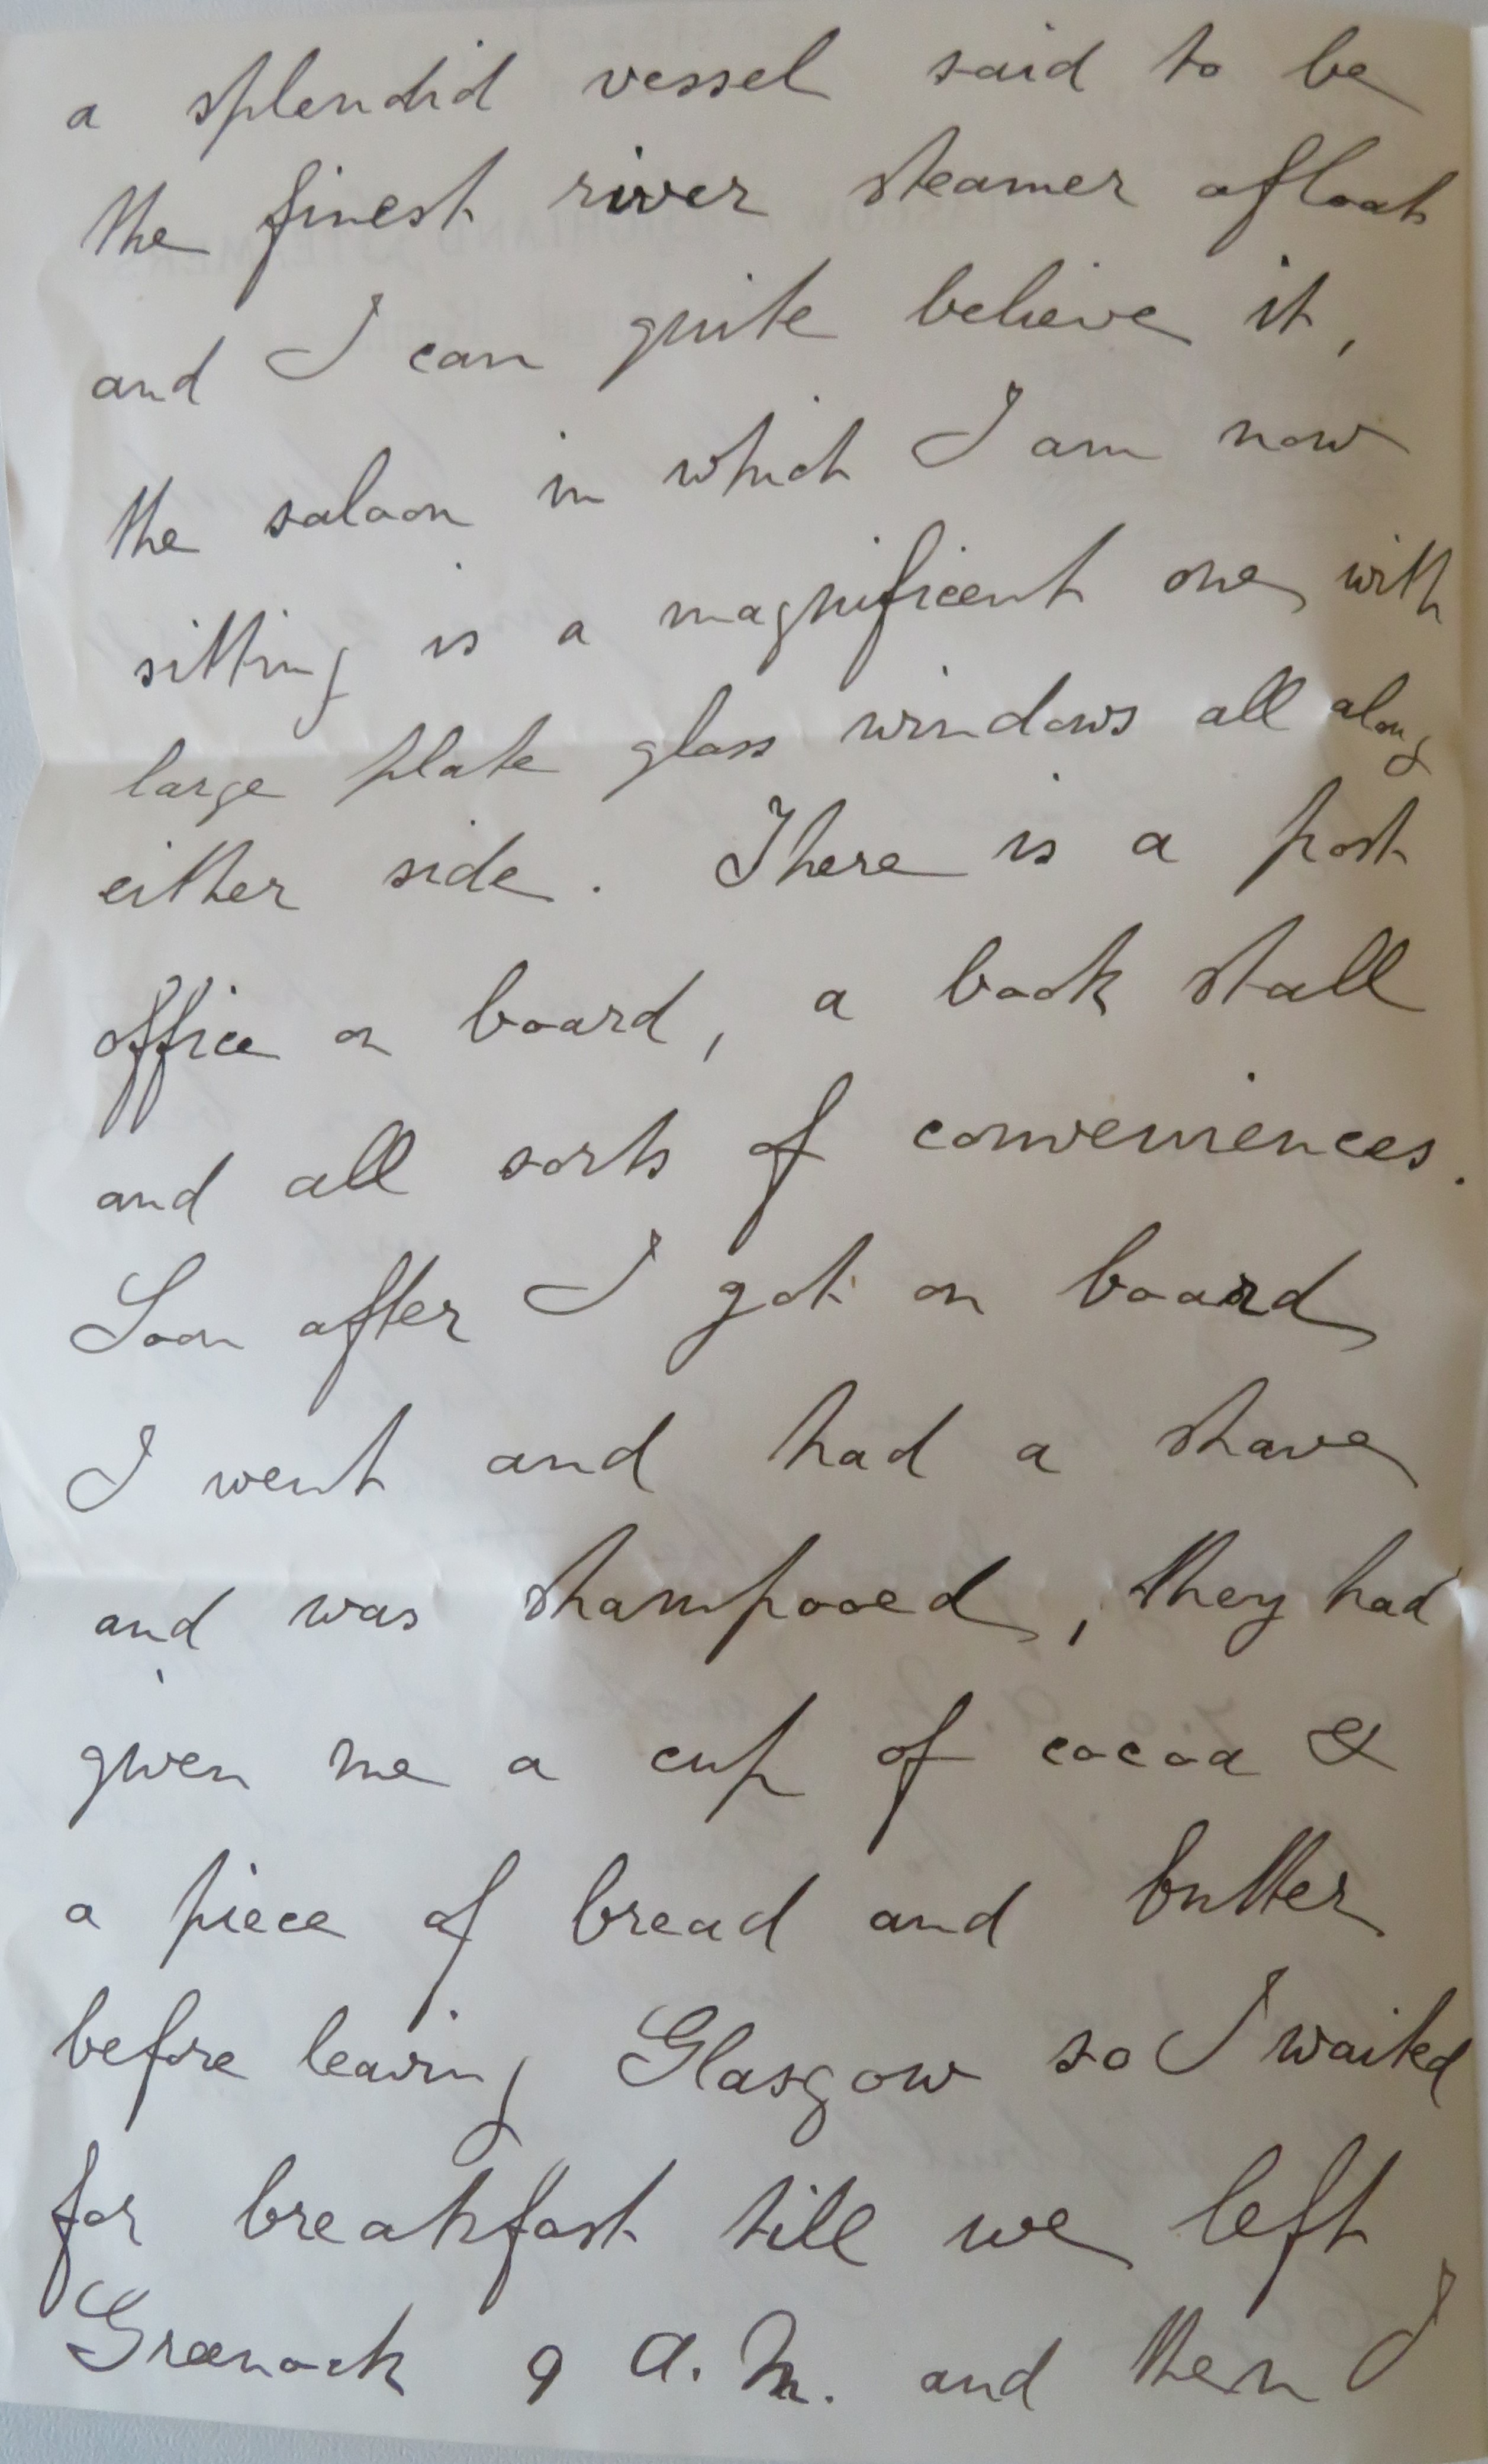 a splendid vessel said to be
the finest river steamer afloat
and I can quite believe it,
the saloon in which I am now
sitting is a magnificent one, with
large plate glass windows all along
either side. There is a post
office on board, a book stall
and all sorts of conveniences.
Soon after I got on board
I went and had a shave
and was shampooed, they had
given me a cup of cocoa &
a piece of bread and butter
before leaving Glasgow so I waited
for breakfast till we left
Greenock 9 A.M. and then I